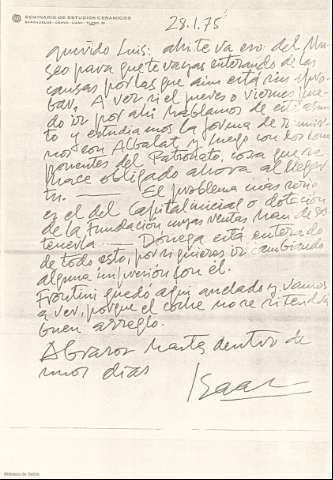 SEMINARIO DE ESTUDIOS CERAMICOS
28.1.75
querido Luis: ahi te va eso del Mu-
seo para que te vayas enterando de las
causas por las que aún está sin apro-
bar. A ver si el jueves o viernes pue-
do ir por ahi hablamos de este asun-
to y estudiamos la forma de reunir-
nos con Albalat y luego con los com-
ponentes del Patronato, cosa que se
hace obligado ahora al llegar
tu. ____ El problema más serio
es el del Capital inicial o dotación
de la Fundación cuyas rentas han de sos-
tenerla ____ Domega está enterado
de todo esto, por si quieres ir cambiando
alguna impresión con él.
Frontini quedó aqui anclado y vamos
a ver, porque el coche no se si tendrá
buen arreglo.
Abrazos hasta dentro de
unos dias
Isaac
Biblioteca de Galicia